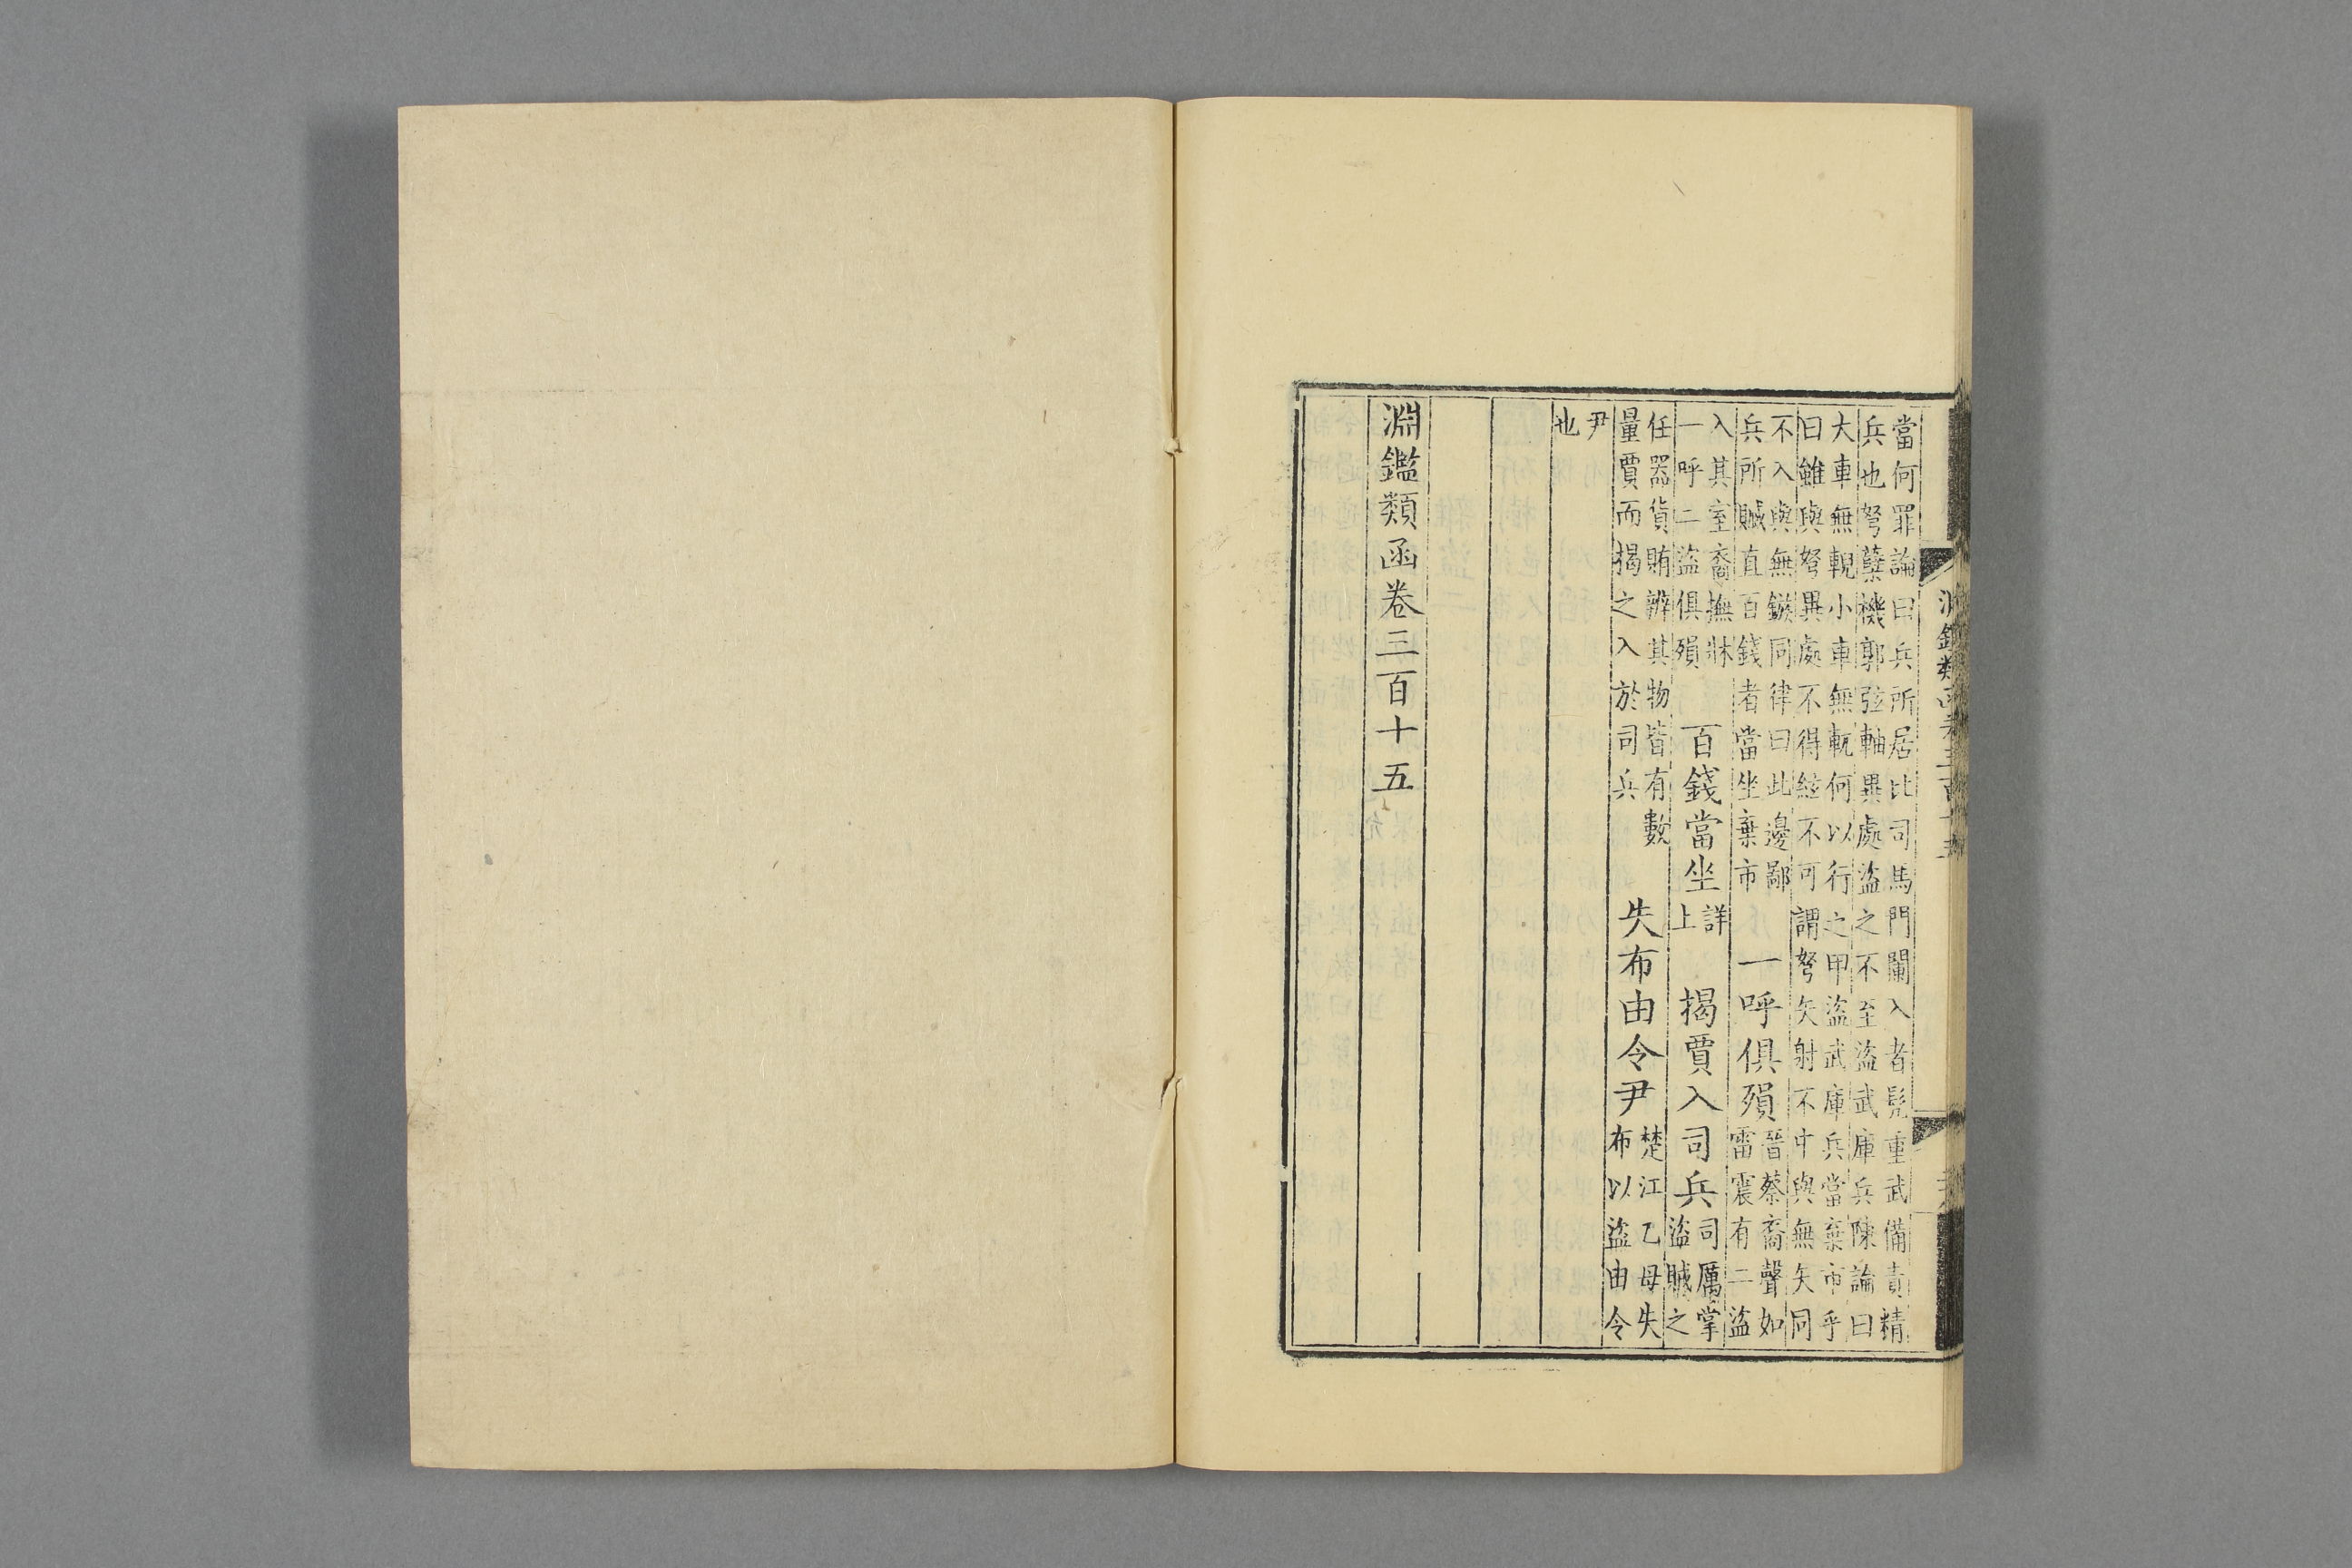 當何罪論曰兵所居比司馬門闌入者髡重武備責精
兵也弩蘗機郭弦軸異處盜之不至盜武庫兵陳論曰
大車無輗小車無軏何以行之甲盜武庫兵當棄市乎
曰雖與弩異處不得絃不可謂弩矢射不中與無矢同
不入與無鏃同律曰此邊鄙
兵所贓直百錢者當坐棄市
一呼俱殞
晉蔡裔聲如
雷震有二盜
入其室裔撫牀
一呼二盜俱殞
百錢當坐
詳
上
揭賈入司兵
司厲掌
盜贓之
任器貨賄辨其物皆有數
量賈而揭之入於司兵
失布由令尹
楚江乙母失
布以盜由令
尹
也
淵鑑類函卷三百十五